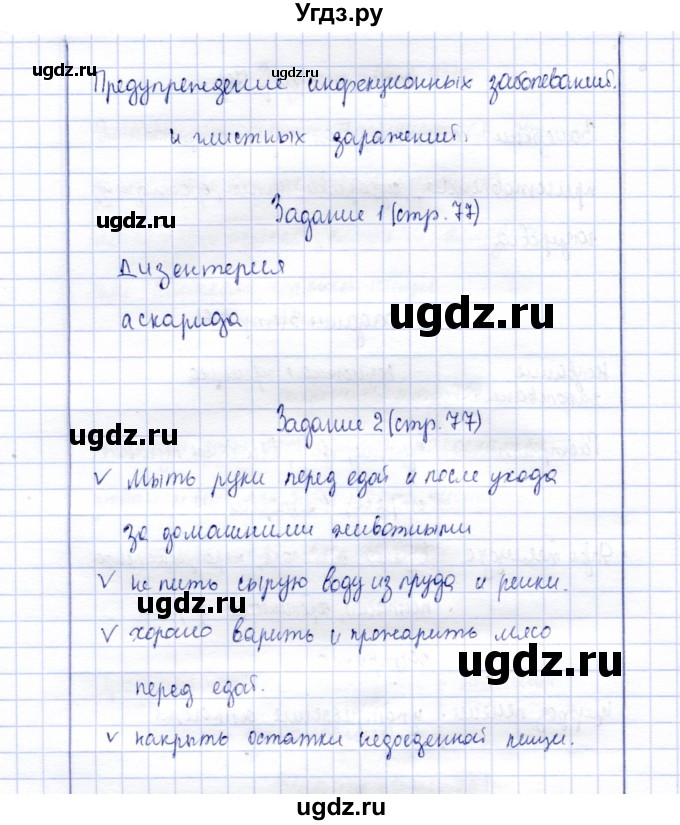 Угдз.ру
ugdz.ru ugdz.ru
Предупреждение инфекционных заболеваний.
и глистных заражений.
Задание 1 (стр. 77)
ugdz.ru
Дизентерия
аскарида
ugdz.ru
Задание 2 (стр. 77)
ugdz.ru
√ Мыть руки перед едой и после ухода
за домашними животными
√ не пить сырую воду из пруда и реики.
ugdz.ru
√ хорошо варить и прожарить мясо
ugdz.ru
перед едой.
√ накрыть остатки недоеденной пищи.
ugdz.ru
ugdz.ru